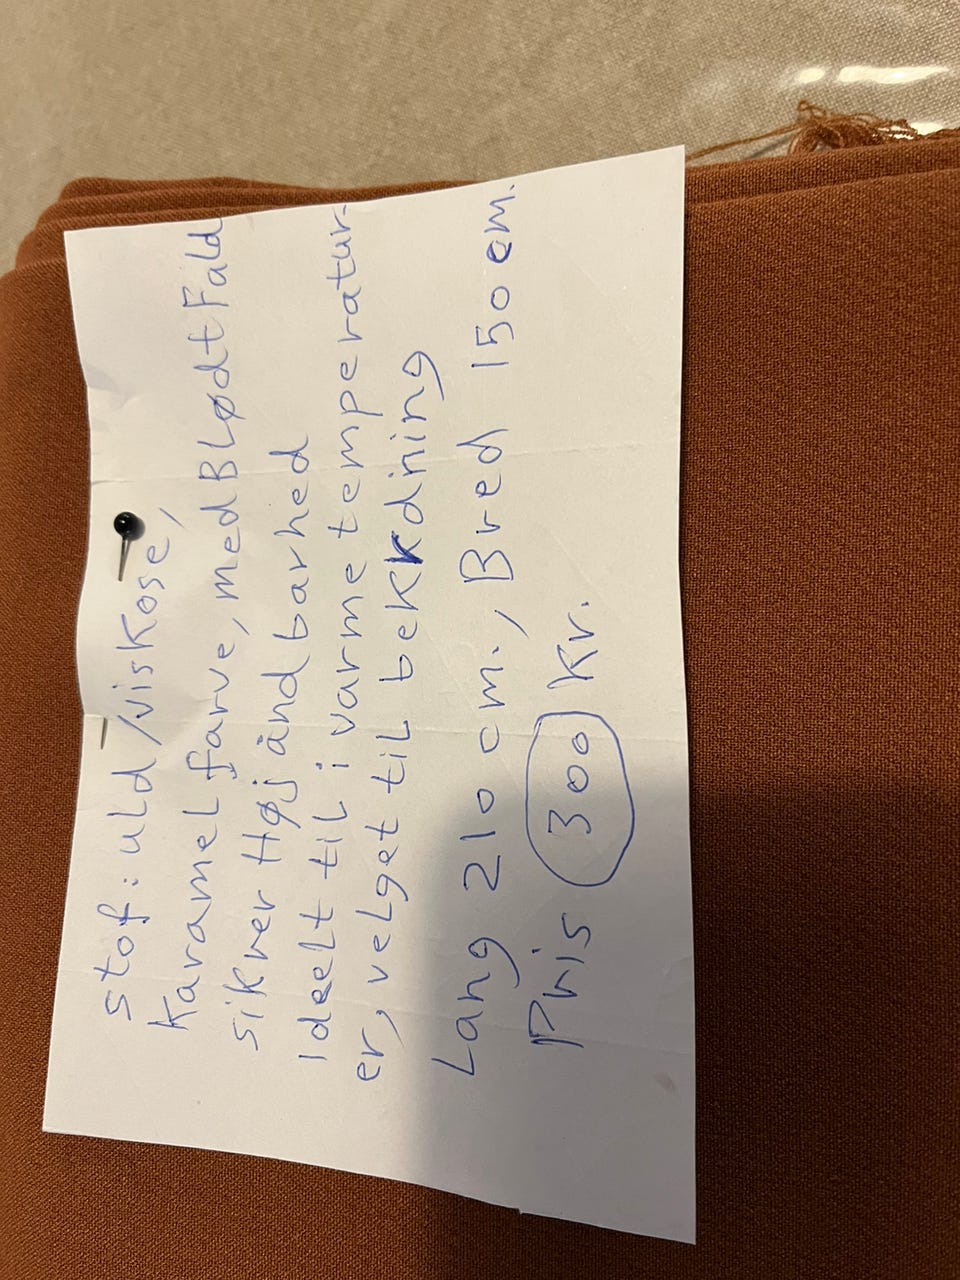 stof: uld/viskose,
Karamel farve, med Blødt Fald
sikrer Høj åndbarhed
Ideelt til i varme temperatur-
er, velget til bekkdning
Lang 210 cm., Bred 150 cm.
Pris 300 kr.